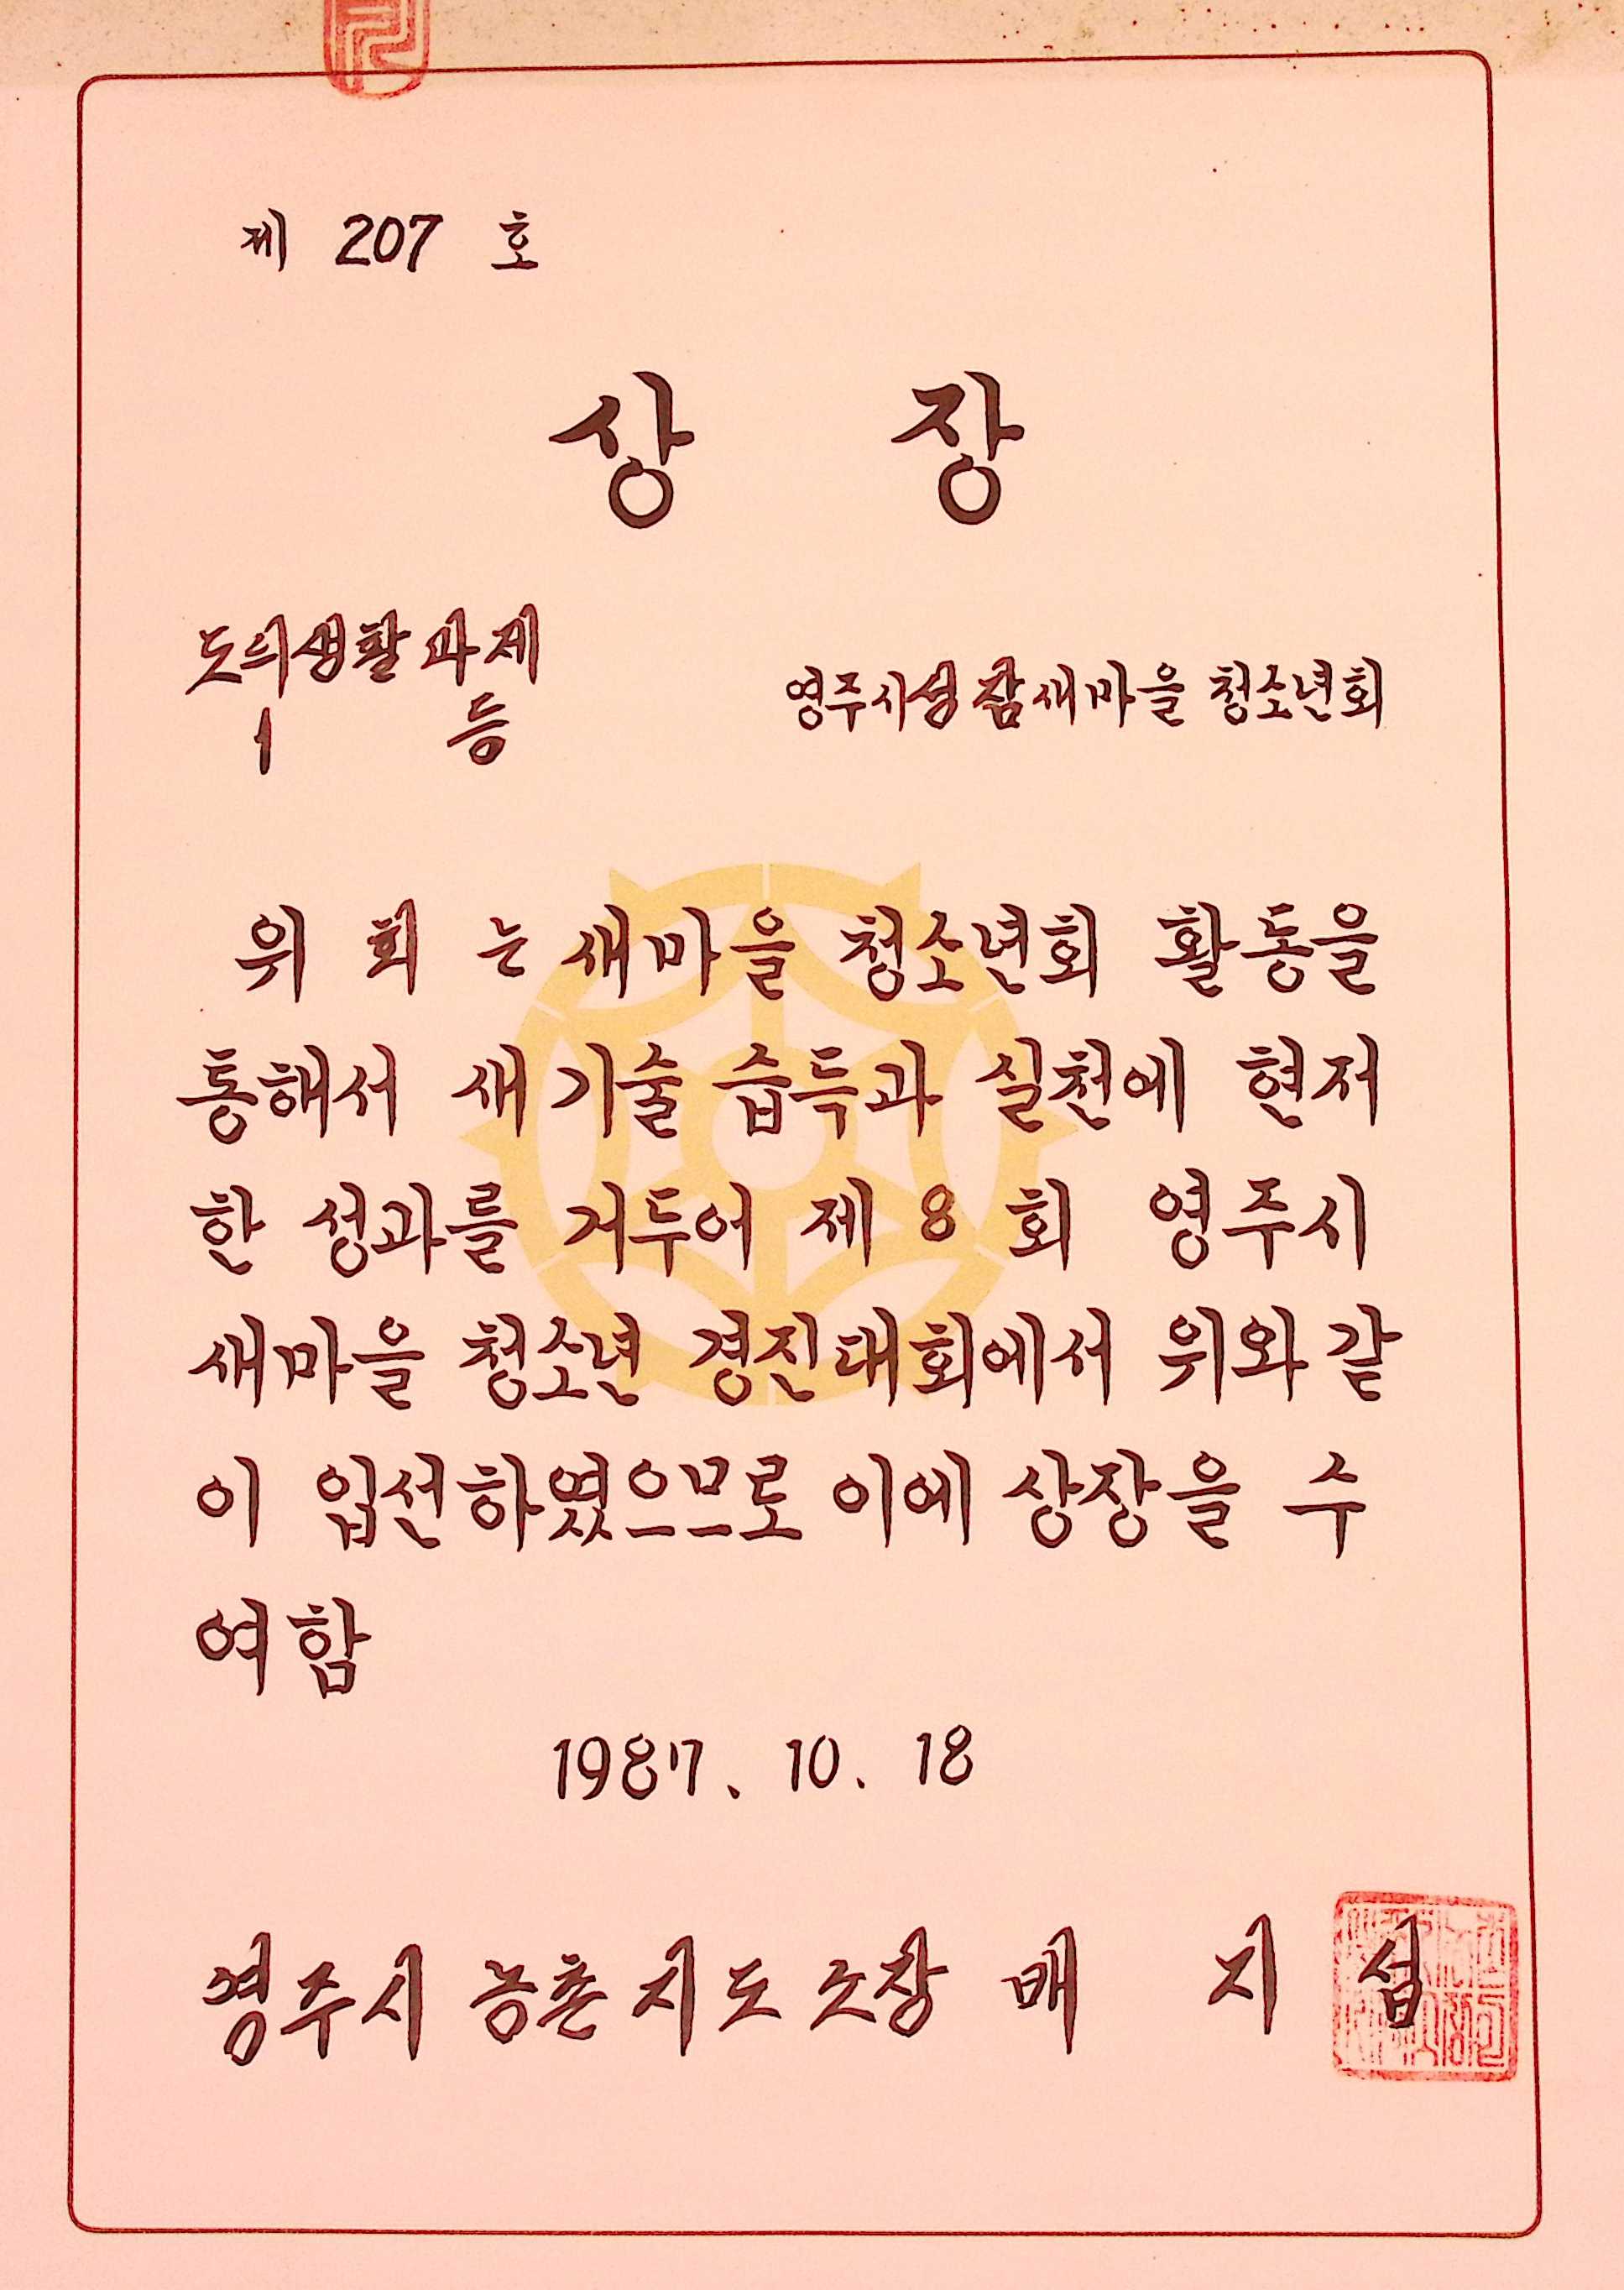 제 207 호
상 장
도의생활과제
1 등
영주시성잠새마을 청소년회
위 회 는 새마을 청소년회 활동을
통해서 새기술 습득과 실천에 현저
한 성과를 거두어 제 8 회 영주시
새마을 청소년 경진대회에서 위와 같
이 입선하였으므로 이에 상장을 수
여함
1987. 10. 18
영주시 농촌지도소장 배 지 섭